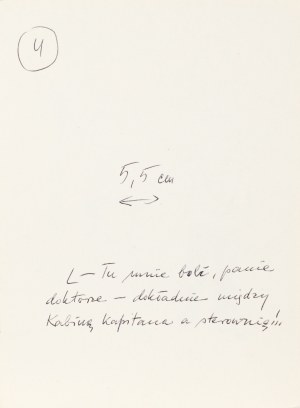 4
5,5 cm
L – Tu mnie boli, panie
doktorze – dokładnie między
Kabiną Kapitana a sterownią!!!